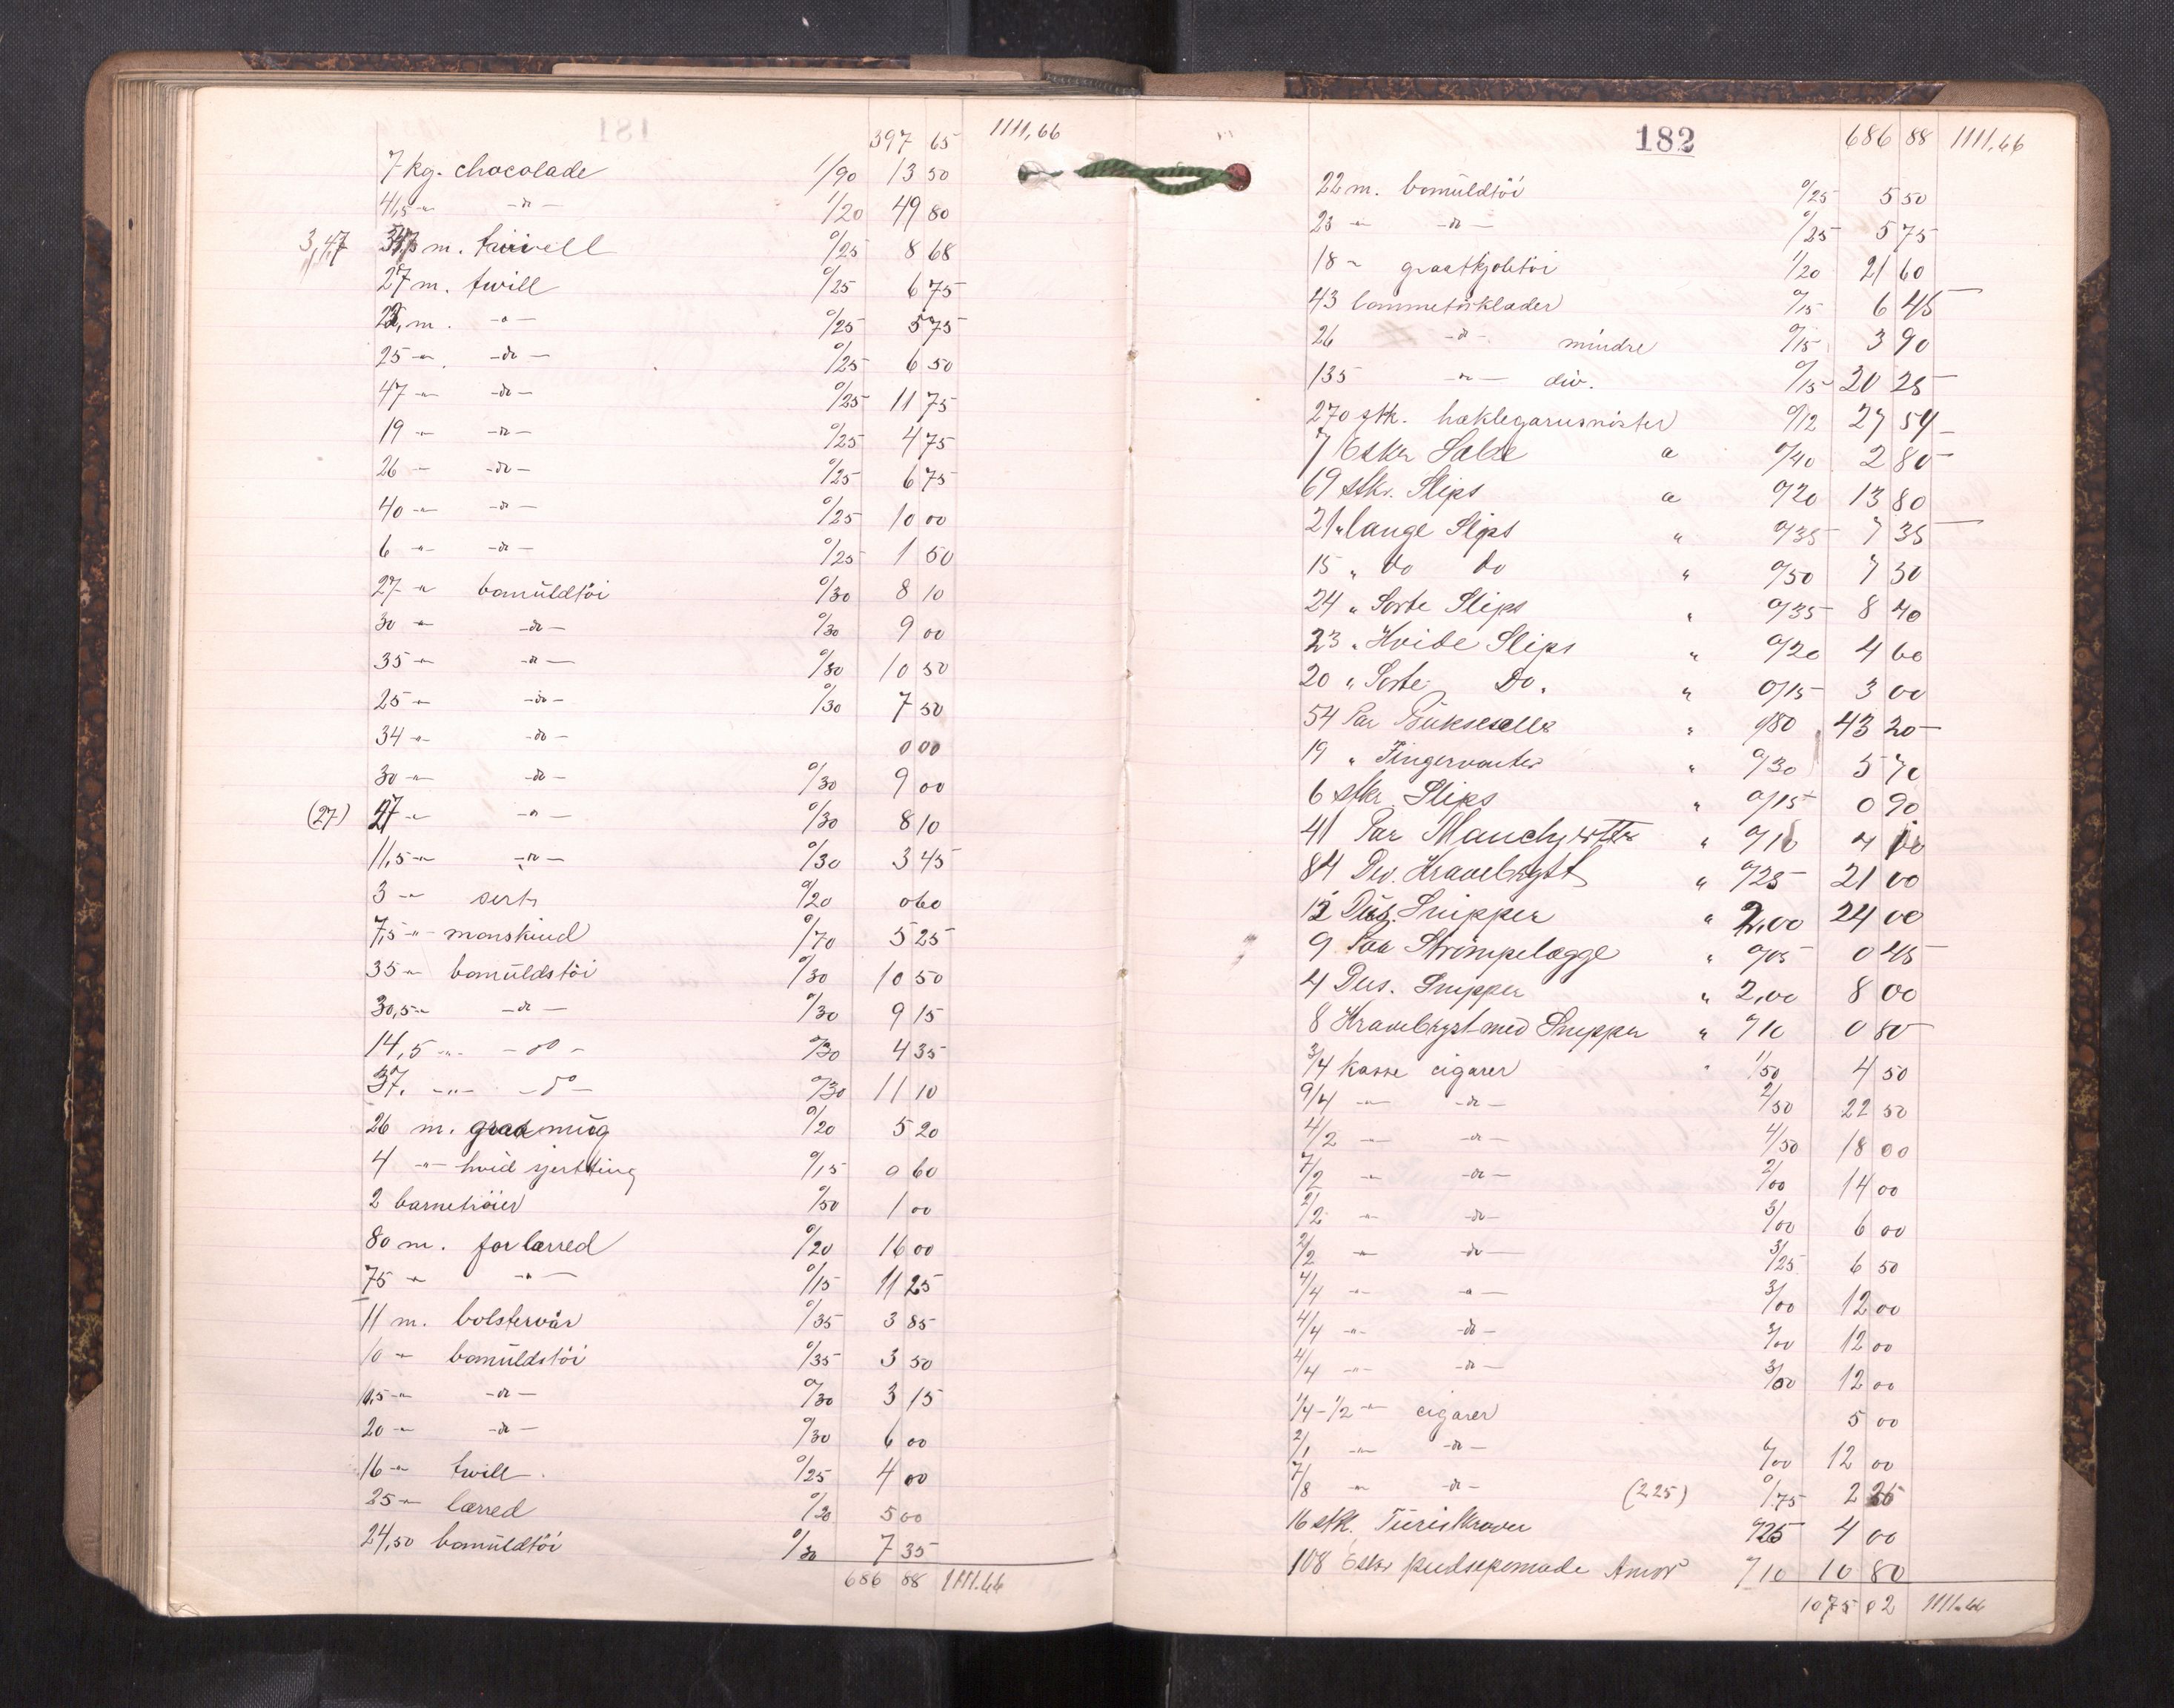 397 65 1111,66
7 kg. chocolade 1/90 13 30
41,5 -"- -do- 1/20 49 80
3,47 m. 0/25 8 68
27 m. twill 0/25 6 75
23, m. -"- 0/25 5 75
25 -"- -do- 0/25 6 50
47 -"- -do- 0/25 11 75
19 -"- -do- 0/25 4 75
26 -"- -do- 0/25 6 75
40 -"- -do- 0/25 10 00
6 -"- -do- 0/25 1 50
27 -"- bomüldtöi 0/30 8 10
30 -"- -do- 0/30 9 00
35 -"- -do- 0/30 10 50
25 -"- -do- 0/30 7 50
34 -"- -do- 0 00
30 -"- -do- 0/30 9 00
(27) 27 -"- -"- 0/30 8 10
11,5 -"- -"- 0/30 3 45
3 -"- serts 0/20 0 60
7,5 -"- monskind 0/70 5 25
35 -"- bomüldstöi 0/30 10 50
30,5 -"- -do- 0/30 9 15
14,5 -"- -do- 0/30 4 35
37. -"- -do- 0/30 11 10
26 m. 0/20 5 20
4 -"- hvid sjertting 0/15 0 60
2 barnetröier 0/50 1 00
80 m. forlærred 0/20 16 00
75 -"- -"- 0/15 11 25
11 m. bolstervår 0/35 3 85
10 -"- bomüldstöi 0/35 3 50
10,5 -"- -do- 0/30 3 15
20 -"- -do- 0/30 6 00
16 -"- twill. 0/25 4 00
25 -"- lærred 0/20 5 00
24,50 bomüldtöi 0/30 7 35
686 88 1111.66
182 686 88 1111,66
22 m. bomüldtöi 0/25 5 50
23 -"- -do- 0/25 5 75
18 -"- graatkjoletöi 1/20 21 60
43 lommetörklæder 0/15 6 45
26 -do- mindre 0/15 3 90
135 -"- div. 0/15 20 25
270 stk. hæklegarnsnöster 0/12 27 54
7 Esker Salve a 0/40 2 80
69 stkr. Slips a 0/20 13 80
21 " lange Slips " 0/35 7 35
15 " Do Do " 0/50 7 30
24 " Sorte Slips " 0/35 8 40
23 " Hvide Slips " 0/20 4 60
20 " Sorte Do. " 0/15 3 00
54 Par Bukseseller " 0/80 43 20
19 " Fingervanter " 0/30 5 70
6 stkr. Slips " 0/15 0 90
41 Par Manchjetter " 0/10 4 10
84 Div. Kravebryst " 0/25 21 00
12 Dus. Snipper " 2,00 24 00
9 Par Strömpelægge " 0/05 0 45
4 Dus. Snipper " 2,00 8 00
8 Kravebryst med Snipper " 0/10 0 80
3/4 kasse cigarer " 1/50 4 50
9/4 -"- -do- 2/50 22 50
4/2 -"- -do- 4/50 18 00
7/2 -"- -do- 2/00 14 00
2/2 -"- -do- 3/00 6 00
2/2 -"- -do- 3/25 6 50
4/4 -"- -"- 3/00 12 00
4/4 -"- -do- 3/00 12 00
4/4 -"- -do- 3/00 12 00
1/4-1/2 -"- cigarer 5 00
2/1 -"- -do- 6/00 12 00
7/8 -"- -do- (2.25) 0/75 2 25
16 stk. Türistkraver 0/25 4 00
108 Esker pudsepomade Amor 0/10 10 80
1075 02 1111.66